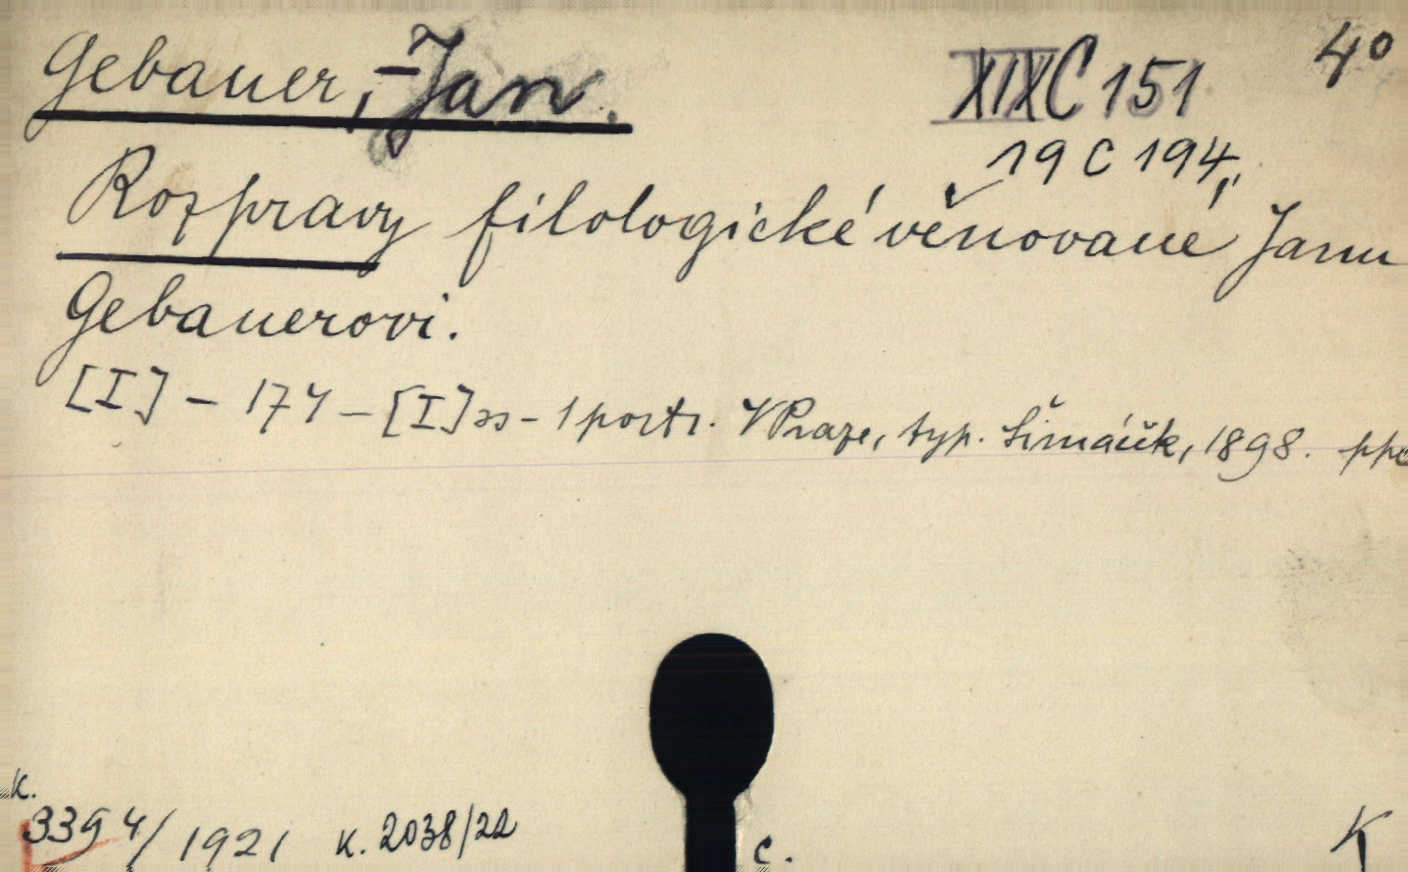 Gebauer, Jan. XIX C 151 4°
19 C 194,
Rozpravy filologické věnované Janu
Gebauerovi.
[I] - 174 - [I] ss - 1 portr. V Praze, typ. Šimáček, 1898.
k.
3394/1921 k. 2038/22 c. K